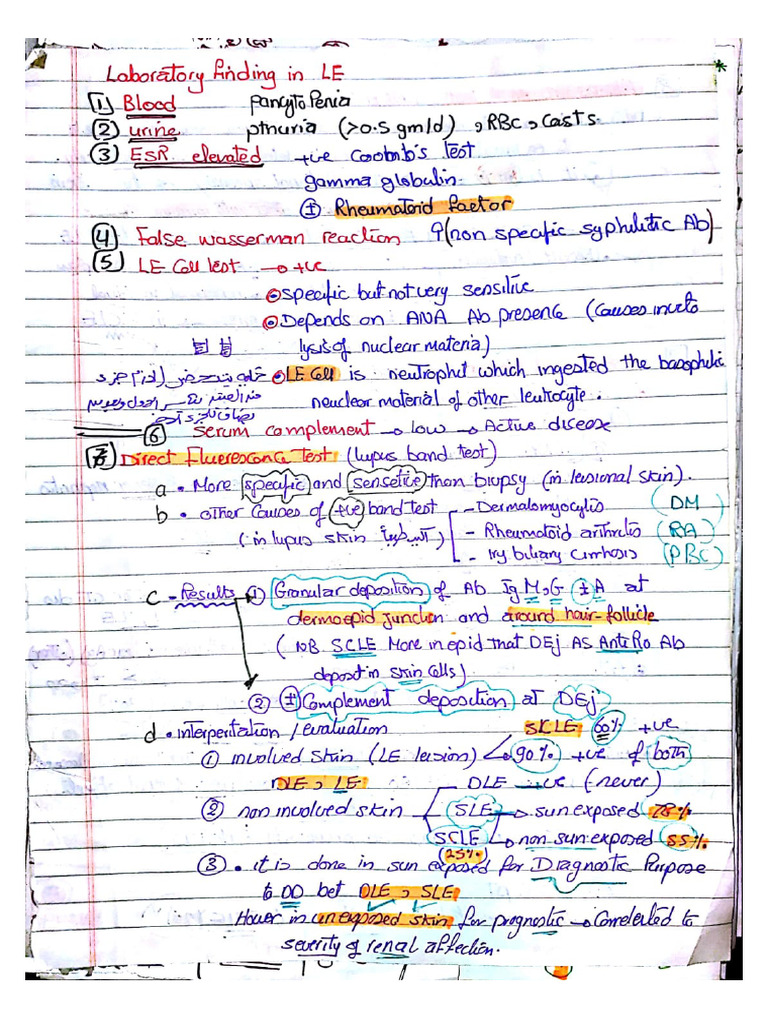 Laboratory finding in LE
① Blood pancytopenia
② urine ptnuria (>0.5 gm/d) , RBc , casts.
③ ESR elevated +ve Coombb's test
gamma globulin
± Rheumatoid factor
④ False wasserman reaction (non specific syphilitic Ab)
⑤ LE Cell test → +ve
specific but not very sensitive
Depends on ANA Ab presence (Causes invitro
lysis of nuclear material)
LE Cell is neutrophil which ingested the basophilic
neuclear material of other leukocyte.
⑥ Serum complement → low → Active disease
7 Direct Fluerescance test (lupus band test)
a • More specific and sensetive than biopsy (in lesional skin).
b • other Causes of +ve band test - Dermatomyocytis (DM)
(in lupus skin) - Rheumatoid arthretis (RA)
- 1ry biliary cirrhosis (PBC)
C - Results ① Granular deposition of Ab IgM,G ± A at
dermoepid junction and around hair-follicle
(NB. SCLE More in epid that DEj As Anti Ro Ab
deposit in skin cells)
② ± Complement deposition at DEj
d • interpertation / evaluation SCLE 60% +ve
① involved skin (LE lesion) 90% +ve of both
DLE , LE
DLE → +ve (-never)
② non involved skin SLE → sun exposed 78%
SCLE → non sun exposed 55%
(25%)
③ • it is done in sun exposed for Diagnostic Purpose
to DD bet DLE , SLE
Hower in unexposed skin for prognostic → Correleted to
severity of renal affection.